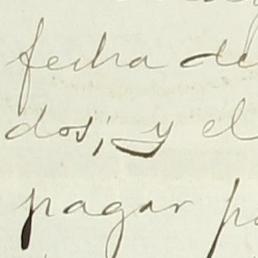 fecha de
dos; y el
pagar